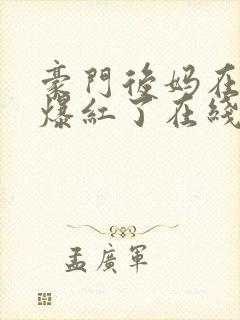 豪門後妈在
爆紅了在綫
孟廣軍